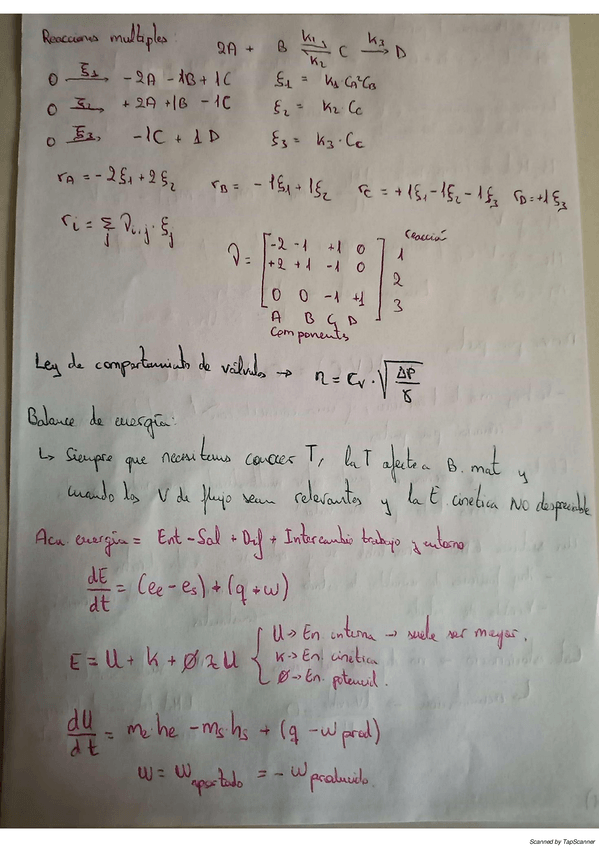 Reacciones multiples: 2A + B ⇌ C → D
k1 k2 k3
0 →ξ1 -2A -1B + 1C ξ1 = k1 CA²CB
0 →ξ2 +2A +1B -1C ξ2 = k2 · CC
0 →ξ3 -1C + 1D ξ3 = k3 · CC
rA = -2ξ1 + 2ξ2 rB = -1ξ1 + 1ξ2 rC = +1ξ1 -1ξ2 -1ξ3 rD = +1ξ3
ri = Σj νi,j · ξj
reacción
ν = [ -2 -1 +1 0 ] 1
+2 +1 -1 0 2
0 0 -1 +1 3
A B C D
components
Ley de comportamiento de válvulas → n = Cv · √(ΔP/γ)
Balance de energía:
↳ Siempre que necesitemos conocer T, la T afecte a B. mat y
cuando los V de flujo sean relevantes y la E cinética NO despreciable
Acu energía = Ent - Sal + Dif + Intercambio trabajo y entorno
dE/dt = (ee - es) + (q + w)
E = U + k + Ø ≈ U { U → En interna → suele ser mayor.
k → En cinética
Ø → En potencial.
dU/dt = me·he - ms·hs + (q - w prod)
w = w aportado = - w producido
Scanned by TapScanner